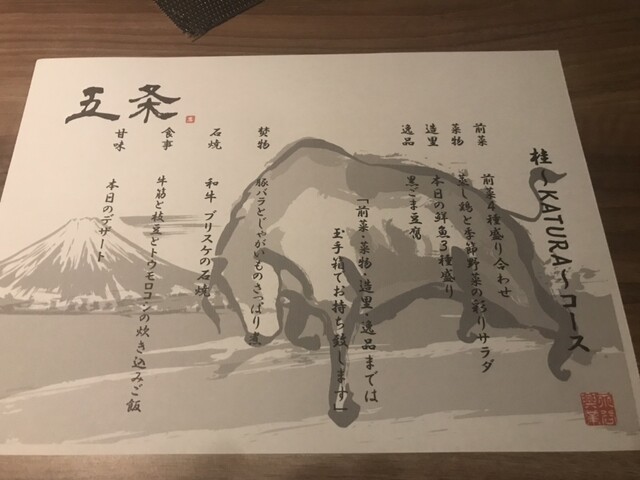 桂～KATURA～コース
前菜 前菜4種盛り合わせ
菜物 蒸し鶏と季節野菜の彩りサラダ
造里 本日の鮮魚3種盛り
逸品 黒ごま豆腐
「前菜・菜物・造里・逸品までは
玉手箱でお持ち致します」
焚物 豚バラとじゃがいものさっぱり煮
石焼 和牛 ブリスケの石焼
食事 牛筋と枝豆とトウモロコシの炊き込みご飯
甘味 本日のデザート
五条